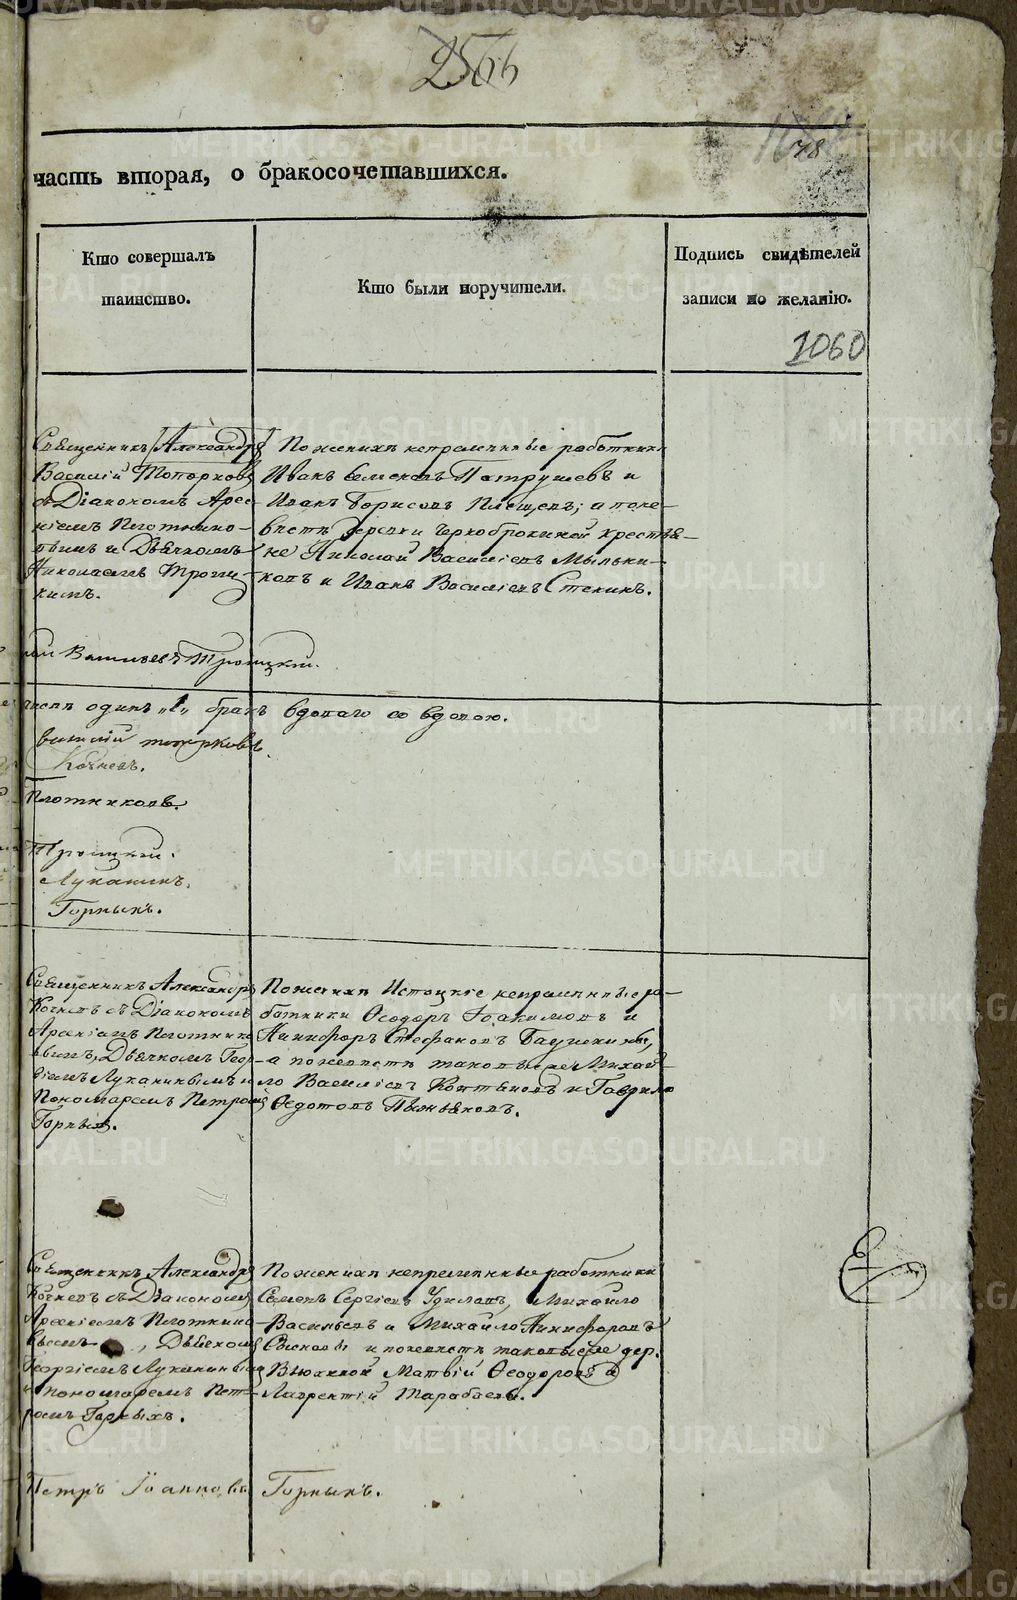 256
78
часть вторая, о бракосочетавшихся.
Кто совершалъ
таинство.
Кто были поручители.
Подпись свидѣтелей
записи по желанію.
1060
Священникъ Александръ
Василій Топорковъ
съ Діакономъ Арсе-
ніемъ Плотнико-
вымъ и Дьячкомъ
Николаемъ Троиц-
кимъ.
По женихѣ непремѣнные работники
Иванъ Семеновъ Патрушевъ и
Иванъ Борисовъ Плещевъ; а по не-
вѣстѣ деревни Чернобровиной крестья-
не Николай Василіевъ Мыльни-
ковъ и Иванъ Василіевъ Стенинъ.
Васильевъ Троицкій.
одинъ „1„ бракъ вдоваго со вдовою.
Василій Топорковъ.
Кочневъ.
Плотниковъ.
Троицкій.
Луканинъ.
Горныхъ.
Священникъ Александръ
Кочневъ съ Діакономъ
Арсеніемъ Плотнико-
вымъ, Дьячкомъ Геор-
гіемъ Луканинымъ и
Пономаремъ Петромъ
Горныхъ.
По женихѣ Истоцкіе непремѣнные ра-
ботники Ѳеодоръ Іоакимовъ и
Никифоръ Стефановъ
а по невѣстѣ таковые же Михай-
ло Василіевъ и Гаврило
Ѳедотовъ Пьянковъ.
Священникъ Александръ
Кочневъ съ Діакономъ
Арсеніемъ Плотнико-
вымъ, Дьячкомъ
Георгіемъ Луканинымъ
и пономаремъ Пет-
ромъ Горныхъ.
По женихѣ непремѣнные работники
Семенъ Сергіевъ Михайло
Васильевъ и Михайло Никифоровъ
и по невѣстѣ таковые же дер.
Матвій Ѳеодоровъ и
Лаврентій Тарабаевъ.
Петръ Іоанновъ Горныхъ.
METRIKI.GASO-URAL.RU